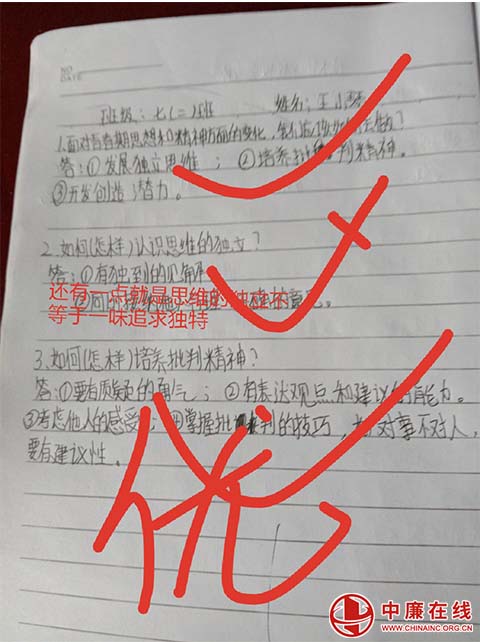 班级：七（二）班 姓名：王小琴
1.面对青春期思想和精神方面的变化，
答：①发展独立思维；②培养批判精神。
③开发创造潜力。
2.如何(怎样)认识思维的独立？
答：①有独到的见解
还有一点就是思维的独立不
意见。
等于一味追求独特
3.如何(怎样)培养批判精神？
答：①要有质疑的勇气；②有表达观点和建议的能力。
③考虑他人的感受；④掌握批判的技巧，对事不对人，
要有建议性。
优
中廉在线
WWW.CHINAINC.ORG.CN